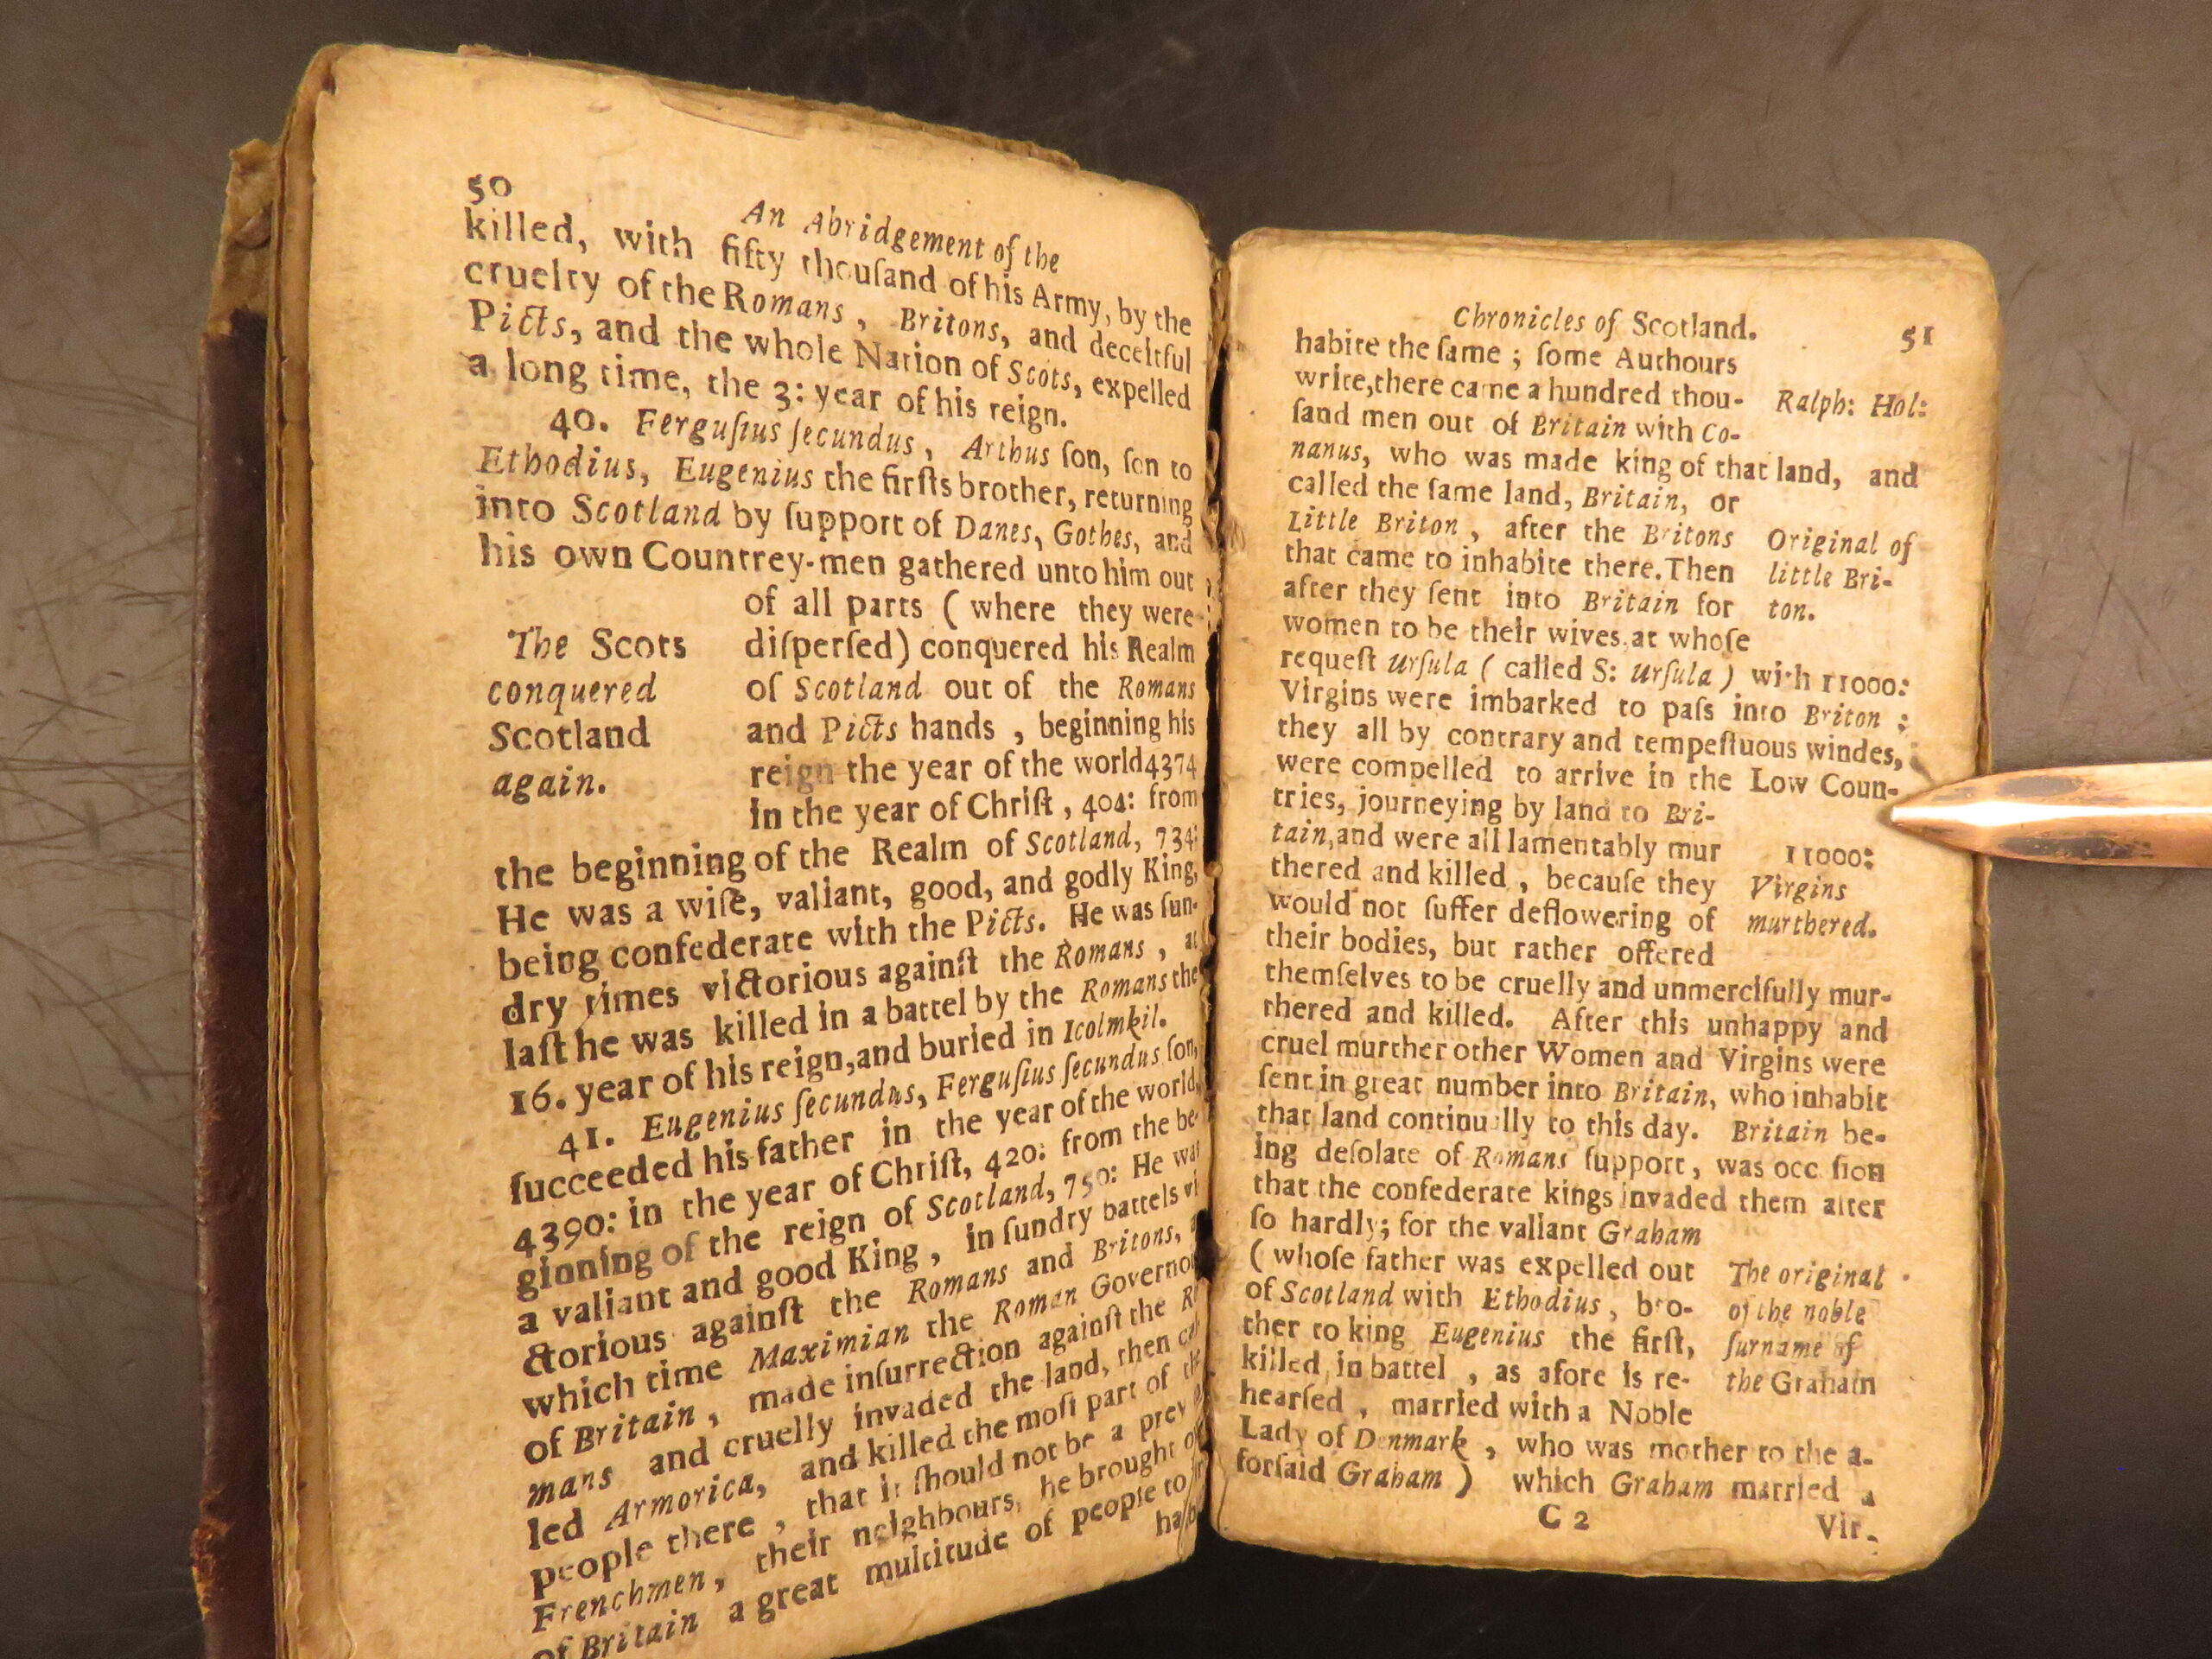 50
An Abridgement of the
killed, with fifty thouſand of his Army, by the
cruelty of the Romans, Britons, and deceitful
Picts, and the whole Nation of Scots, expelled
a long time, the 3: year of his reign.
40. Ferguſius ſecundus, Arthus ſon, ſon to
Ethodius, Eugenius the firſts brother, returning
into Scotland by ſupport of Danes, Gothes, and
his own Countrey-men gathered unto him out
of all parts ( where they were
diſperſed) conquered his Realm
of Scotland out of the Romans
and Picts hands, beginning his
reign the year of the world 4374
in the year of Chriſt, 404: from
The Scots
conquered
Scotland
again.
the beginning of the Realm of Scotland, 734:
He was a wiſe, valiant, good, and godly King,
being confederate with the Picts. He was ſun-
dry times victorious againſt the Romans, at
laſt he was killed in a battel by the Romans the
16. year of his reign, and buried in Icolmkil.
41. Eugenius ſecundus, Ferguſius ſecundus ſon,
ſucceeded his father in the year of the world,
4390: in the year of Chriſt, 420: from the be-
ginning of the reign of Scotland, 750: He was
a valiant and good King, in ſundry battels vi
ctorious againſt the Romans and Britons,
which time Maximian the Roman Governor
of Britain, made inſurrection againſt the
mans and cruelly invaded the land, then
led Armorica, and killed the moſt part of
people there, that it ſhould not be a prey
Frenchmen, their neighbours, he brought
of Britain a great multitude of people to
Chronicles of Scotland.
51
habite the ſame; ſome Authours
write, there came a hundred thou-
ſand men out of Britain with Co-
Ralph: Hol:
nanus, who was made king of that land, and
called the ſame land, Britain, or
Little Briton, after the Britons
that came to inhabite there. Then
after they ſent into Britain for
women to be their wives, at whoſe
Original of
little Bri-
ton.
requeſt Urſula ( called S: Urſula ) with 11000:
Virgins were imbarked to paſs into Briton;
they all by contrary and tempeſtuous windes,
were compelled to arrive in the Low Coun-
tries, journeying by land to Bri-
tain, and were all lamentably mur
thered and killed, becauſe they
would not ſuffer deflowering of
their bodies, but rather offered
11000:
Virgins
murthered.
themſelves to be cruelly and unmercifully mur-
thered and killed. After this unhappy and
cruel murther other Women and Virgins were
ſent in great number into Britain, who inhabit
that land continually to this day. Britain be-
ing deſolate of Romans ſupport, was occ ſion
that the confederate kings invaded them after
ſo hardly; for the valiant Graham
( whoſe father was expelled out
of Scotland with Ethodius, bro-
ther to king Eugenius the firſt,
killed in battel, as afore is re-
hearſed, married with a Noble
The original
of the noble
ſurname of
the Graham
Lady of Denmark, who was mother to the a-
forſaid Graham ) which Graham married a
C 2
Vir-